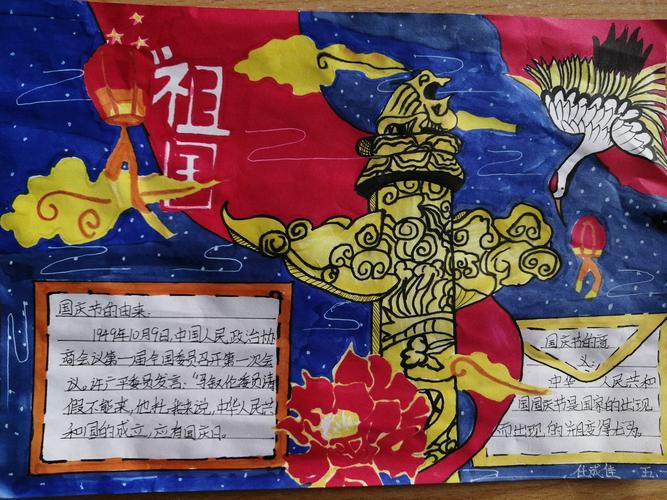 祖国
国庆节的由来
1949年10月9日,中国人民政治协
商会议第一届全国委员召开第一次会
议。许广平委员发言:"马叙伦委员请
假不能来,他托我来说,中华人民共
和国的成立,应有国庆日。
国庆节的意
义:
中华 人民共和
国国庆节是国家的出现
而出现 的
五、